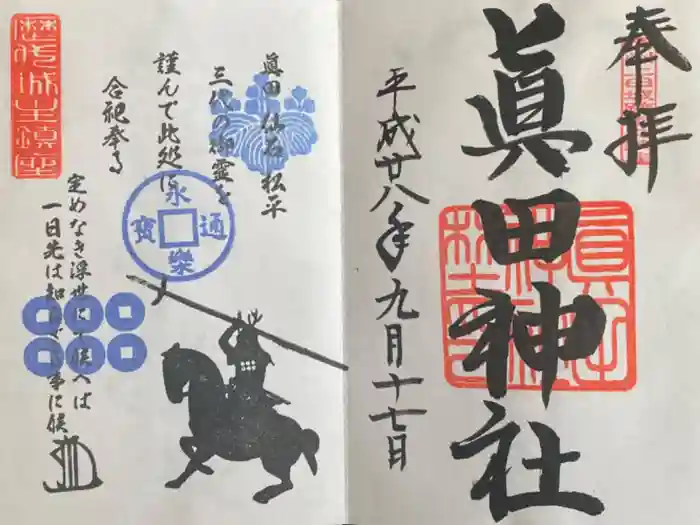 奉拝
眞田神社
眞田神社
平成廿八年九月十七日
歴代城主鎮座
眞田 仙石 松平
三代の御霊を
謹んで此処に
合祀奉る
永樂通寳
定めなき浮世にて候へば
一日先は知れざる事に候